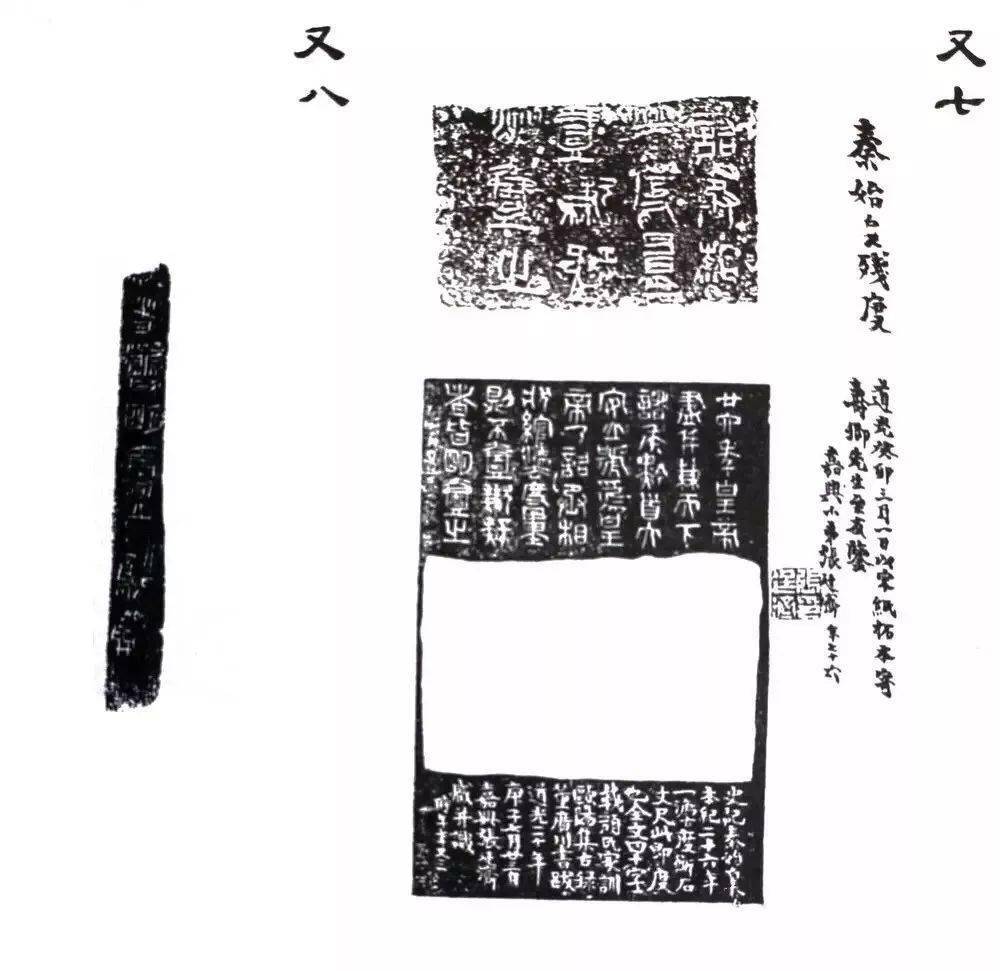 又七
秦始皇殘度
道光癸卯三月一日以宋紙拓本寄
壽卿先生鑒
嘉興小弟張廷濟年七十六
諸矦黔
立號爲
壹歉疑
明壹之
廿六年皇帝
盡并兼天下
諸矦黔首大
安立號爲皇
帝乃詔丞相
狀綰灋度量
則不壹歉疑
者皆明壹之
史記秦始皇
本紀二十六年
一灋度衡石
丈尺此即度
也全文四十字
載顏氏家訓
歐陽集古録
董廣川書跋
道光二十年
庚子七月廿三日
嘉興張廷濟
叔未識
時年七十三
又八